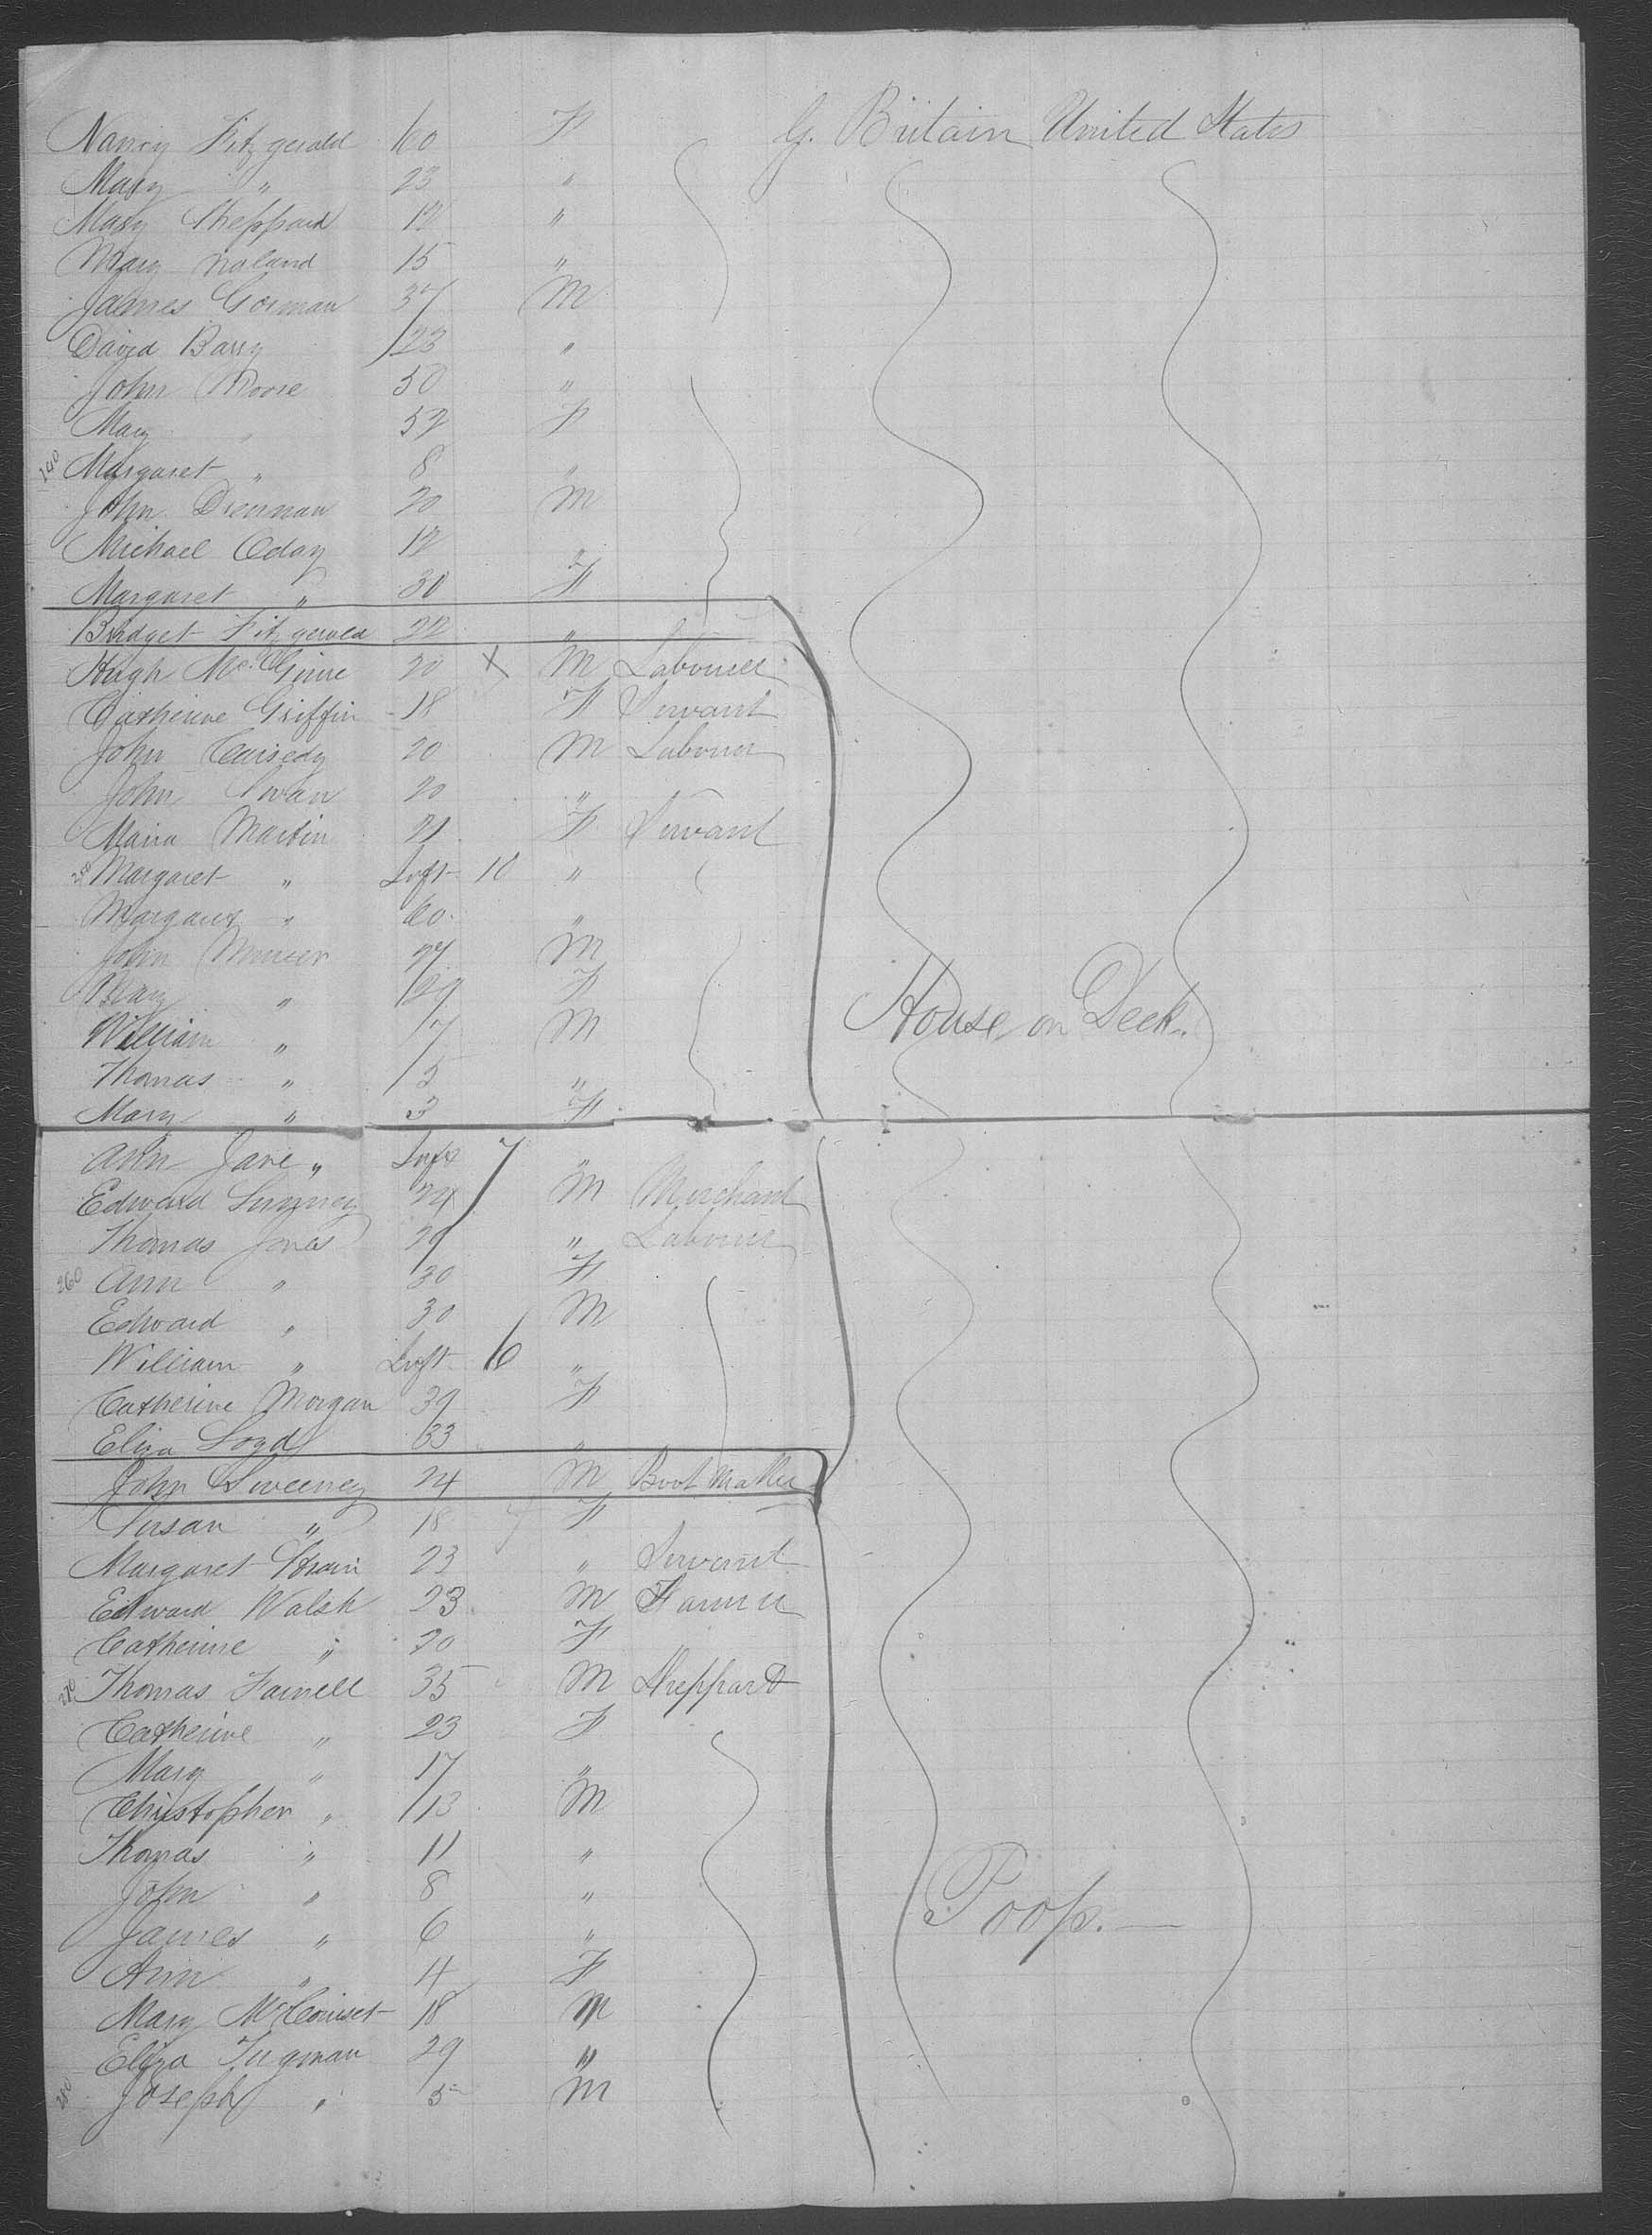 Nancy Fitzgerald 60 F G. Britain United States
Mary " 23 "
Mary Sheppard 12 "
Mary Noland 15 "
James Gorman 37 M
David Barry 23 "
John Moore 50 "
Mary " 52 F
240 Margaret " 8 "
John Drennan 20 M
Michael Oday 12 "
Margaret " 30 F
Bridget Fitzgerald 22 "
Hugh McGinne 20 X M Labourer
Catherine Griffin 18 F Servant
John Cassedy 20 M Labourer
John Swan 20 "
Maria Martin 21 F Servant
250 Margaret " Inft 10 "
Margaret " 60 "
John 27 M
Mary " 29 F
William " 7 M
Thomas " 5 "
Mary " 3 F
House on Deck.
Ann Jane " Inft 7 "
Edward 24 M Merchant
Thomas Jones 29 " Labourer
260 Ann " 30 F
Edward " 30 M
William " Inft 6 "
Catherine Morgan 39 F
Eliza Loyd 33 "
John Sweeney 24 M Boot Maker
Susan " 18 F
Margaret Strain 23 " Servant
Edward Walsh 23 M Farmer
Catherine " 20 F
270 Thomas Farrell 35 M Sheppard
Catherine " 23 F
Mary " 17 "
Christopher " 13 M
Thomas " 11 "
John " 8 "
James " 6 "
Poop.
Ann " 4 F
Mary 18 M
Eliza Tugman 29 "
280 Joseph " 5 M